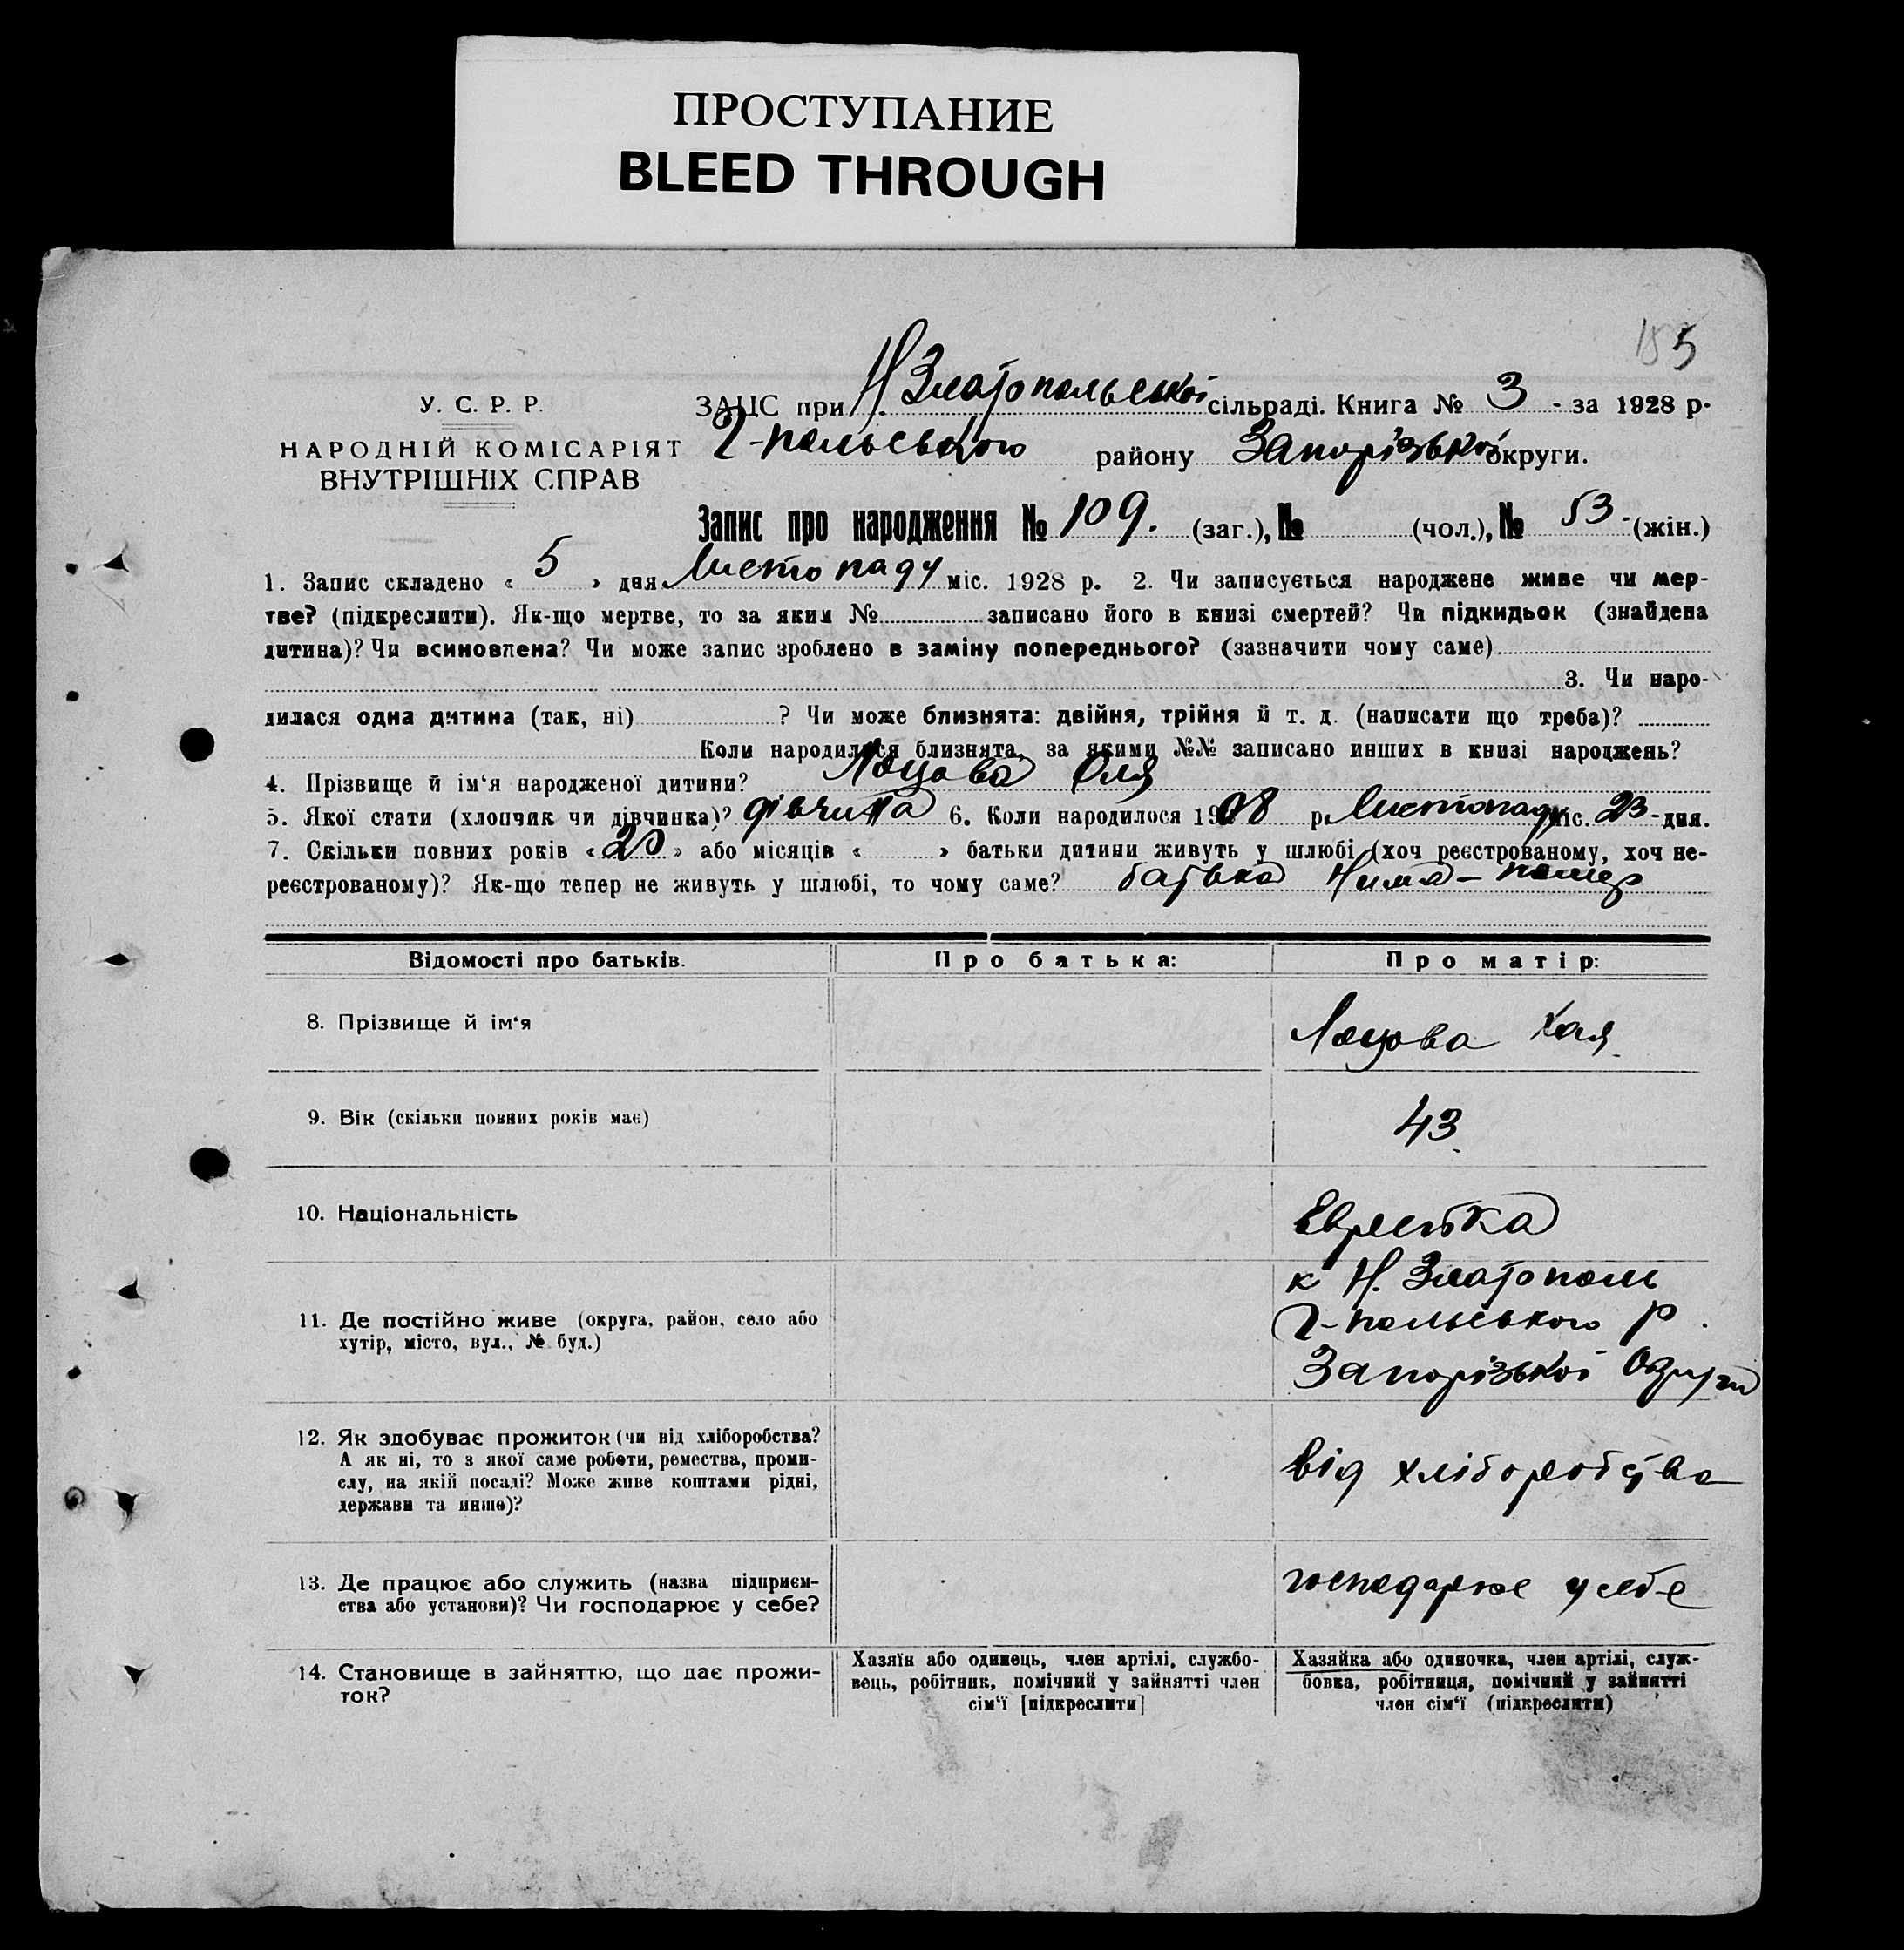 ПРОСТУПАНИЕ
BLEED THROUGH
5
У. С. Р. Р.
НАРОДНІЙ КОМІСАРІЯТ
ВНУТРІШНІХ СПРАВ
ЗАЦС при Н. Златопольської сільраді. Книга № 3 - за 1928 р.
Г-польського району Запорізької округи.
Запис про народження № 109. (заг.), № (чол.), № 53 - (жін.)
1. Запис складено « 5 » дня Листопаду міс. 1928 р. 2. Чи записується народжене живе чи мер-
тве? (підкреслити). Як-що мертве, то за яким № записано його в книзі смертей? Чи підкидьок (знайдена
дитина)? Чи всиновлена? Чи може запис зроблено в заміну попереднього? (зазначити чому саме)
3. Чи наро-
дилася одна дитина (так, ні) ? Чи може близнята: двійня, трійня й т. д. (написати що треба)?
Коли народилися близнята, за якими №№ записано инших в книзі народжень?
4. Прізвище й ім‘я народженої дитини? Лоцова Оля
5. Якої стати (хлопчик чи дівчинка)? дівчина 6. Коли народилося 1908 р. Листопаду міс. 23 - дня.
7. Скільки повних років « 20 » або місяців « » батьки дитини живуть у шлюбі (хоч реєстрованому, хоч не-
реєстрованому)? Як-що тепер не живуть у шлюбі, то чому саме? батька Нима - помер
Відомості про батьків. Про батька: Про матір:
8. Прізвище й ім‘я Лоцова Хая
9. Вік (скільки повних років має) 43
10. Національність Еврейка
к Н. Златополь
11. Де постійно живе (округа, район, село або
хутір, місто, вул., № буд.)
Г-польського р.
Запорізької Округи
12. Як здобуває прожиток (чи від хліборобства?
А як ні, то з якої саме роботи, ремества, проми-
слу, на якій посаді? Може живе коштами рідні,
держави та инше)?
від хліборобства
13. Де працює або служить (назва підприєм-
ства або установи)? Чи господарює у себе?
господарює у себе
14. Становище в зайняттю, що дає прожи-
ток?
Хазяїн або одинець, член артілі, службо-
вець, робітник, помічний у зайнятті член
сім‘ї [підкреслити]
Хазяйка або одиночка, член артілі, служ-
бовка, робітниця, помічний у зайнятті
член сім‘ї (підкреслити)